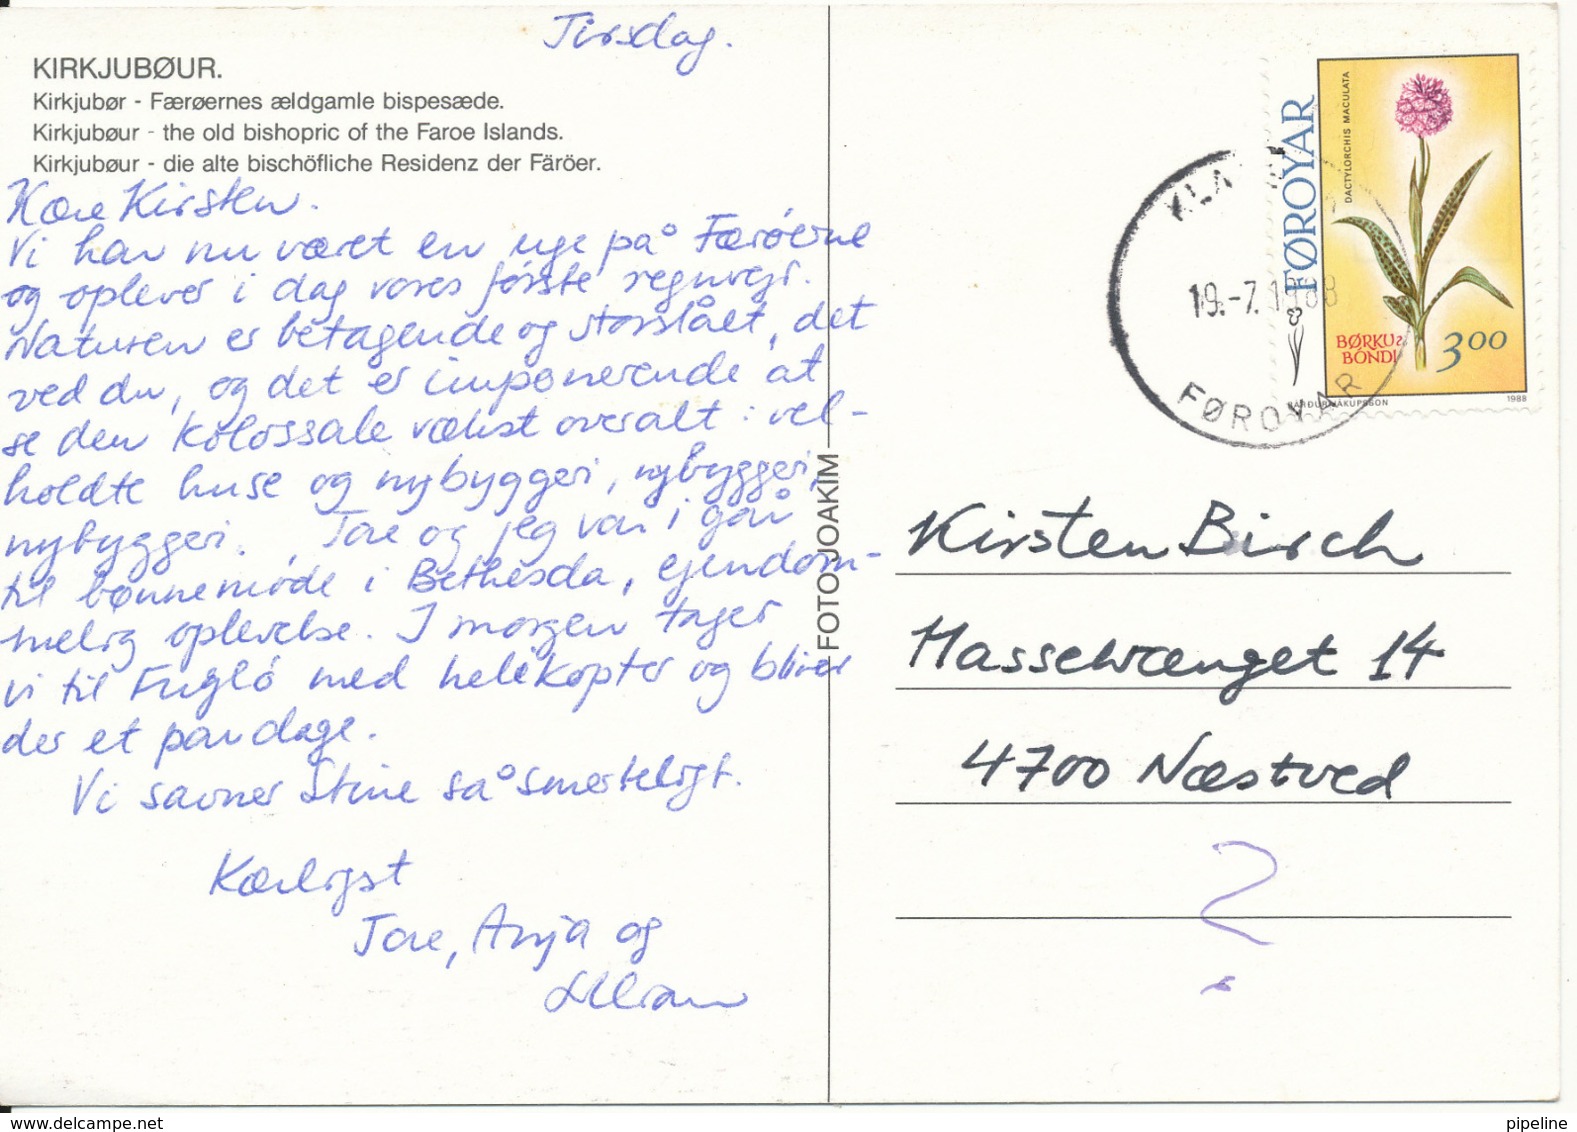 Tirsdag.
KIRKJUBØUR.
Kirkjubør - Færøernes ældgamle bispesæde.
Kirkjubøur - the old bishopric of the Faroe Islands.
Kirkjubøur - die alte bischöfliche Residenz der Färöer.
Kære Kirsten.
Vi har nu været en uge på Færøerne
og oplever i dag vores første regnvejr.
Naturen er betagende og storslået, det
ved du, og det er imponerende at
se den kolossale vækst overalt: vel-
holdte huse og nybyggeri, nybyggeri,
nybyggeri. Tore og jeg var i går
til bønnemøde i Bethesda, ejendom-
melig oplevelse. I morgen tager
vi til Fugló med helikopter og bliver
der et par dage.
Vi savner Stine så smerteligt.
Kærligst
Tore, Anja og
Lilian
FOTO JOAKIM
FØROYAR
DACTYLORCHIS MACULATA
BØRKU
BONDI
3 00
BÁRÐUR JÁKUPSSON
1988
KLA
19.-7.1988
FØROYAR
Kirsten Birch
Hasselvænget 14
4700 Næstved
?
pipeline